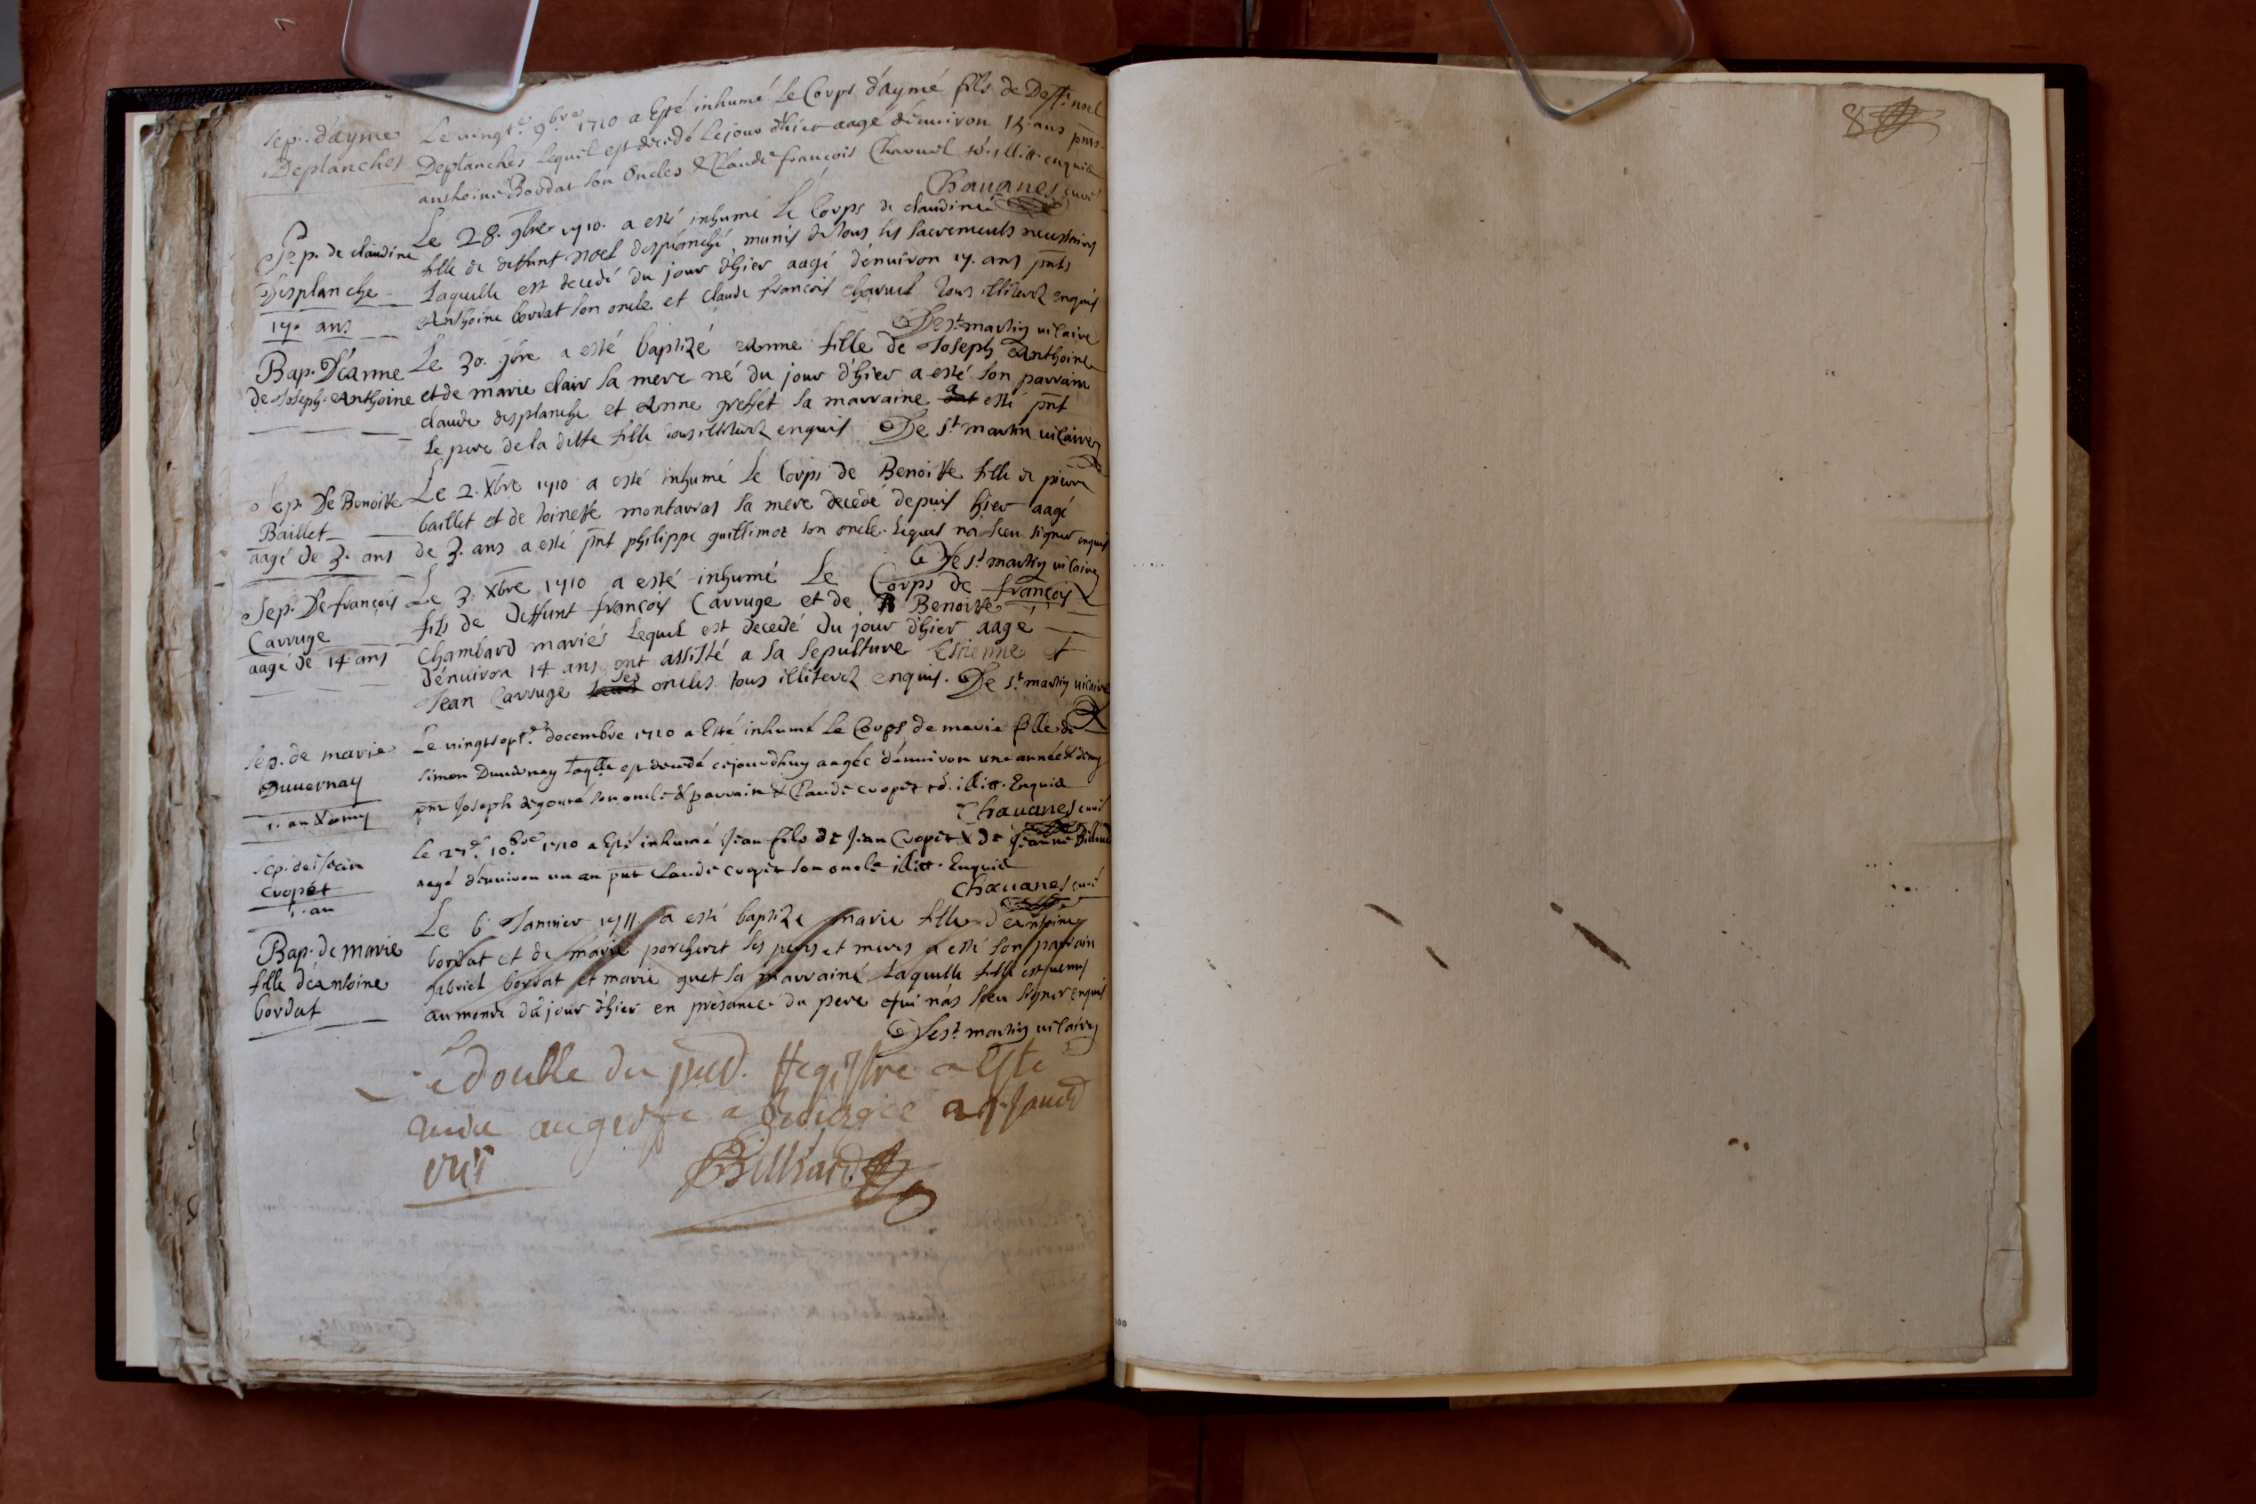 Sep. d'ayme
Deplanches
Le vingt.e 9bre 1710 a Esté inhumé le Corps d'aymé fils de Defft noel
Deplanches lequel est decedé le jour d'hier aagé d'enuiron 14. ans pnts
anthoine Bordat son Oncles & Claude françois Charuel illitt. enquis
Chauanes curé
Sep. de claudine
Desplanche
17. ans
Le 28. 9bre 1710. a esté inhumé le Corps de claudine
fille de deffunt noel desplanche, munis de tous les sacrements necessaires
Laquelle est decedé du jour d'hier aagé d'enuiron 17. ans pnts
Anthoine bordat son oncle et claude françois charuel tous illiterez enquis
De st martin uicaire
Bap. D'éanne
de Joseph. Anthoine
Le 30. 9bre a esté baptizé Anne fille de Joseph Anthoine
et de marie clair sa mere né du jour d'hier a esté son parrain
claude desplanche et Anne greffet sa marraine a esté pnt
le pere de la ditte fille tous illiterez enquis De st martin uicaire
Sep. De Benoitte
Baillet
aagé de 3. ans
Le 2. Xbre 1710 a esté inhumé le Corps de Benoitte fille de pierre
baillet et de toinette montarras sa mere decedé depuis hier aagé
de 3. ans a esté pnt philippe guillimot son oncle. lequel na sceu signer enquis
De st martin uicaire
Sep. De françois
Carruge
aagé de 14 ans
Le 3. Xbre 1710 a esté inhumé Le Corps de françois
fils de deffunt françois Carruge et de Benoitte
Chambard mariés lequel est decedé du jour d'hier aagé
d'enuiron 14 ans ont assisté a sa sepulture Estienne et
Jean Carruge ses oncles tous illiterez enquis. De st martin uicaire
Sep. de marie
Duuernay
1. an & demy
Le uingtsept.e decembre 1710 a Esté inhumé le Corps de marie fille de
simon Duuernay laqlle est decedé cejourdhuy aagée d'enuiron une année & demy
pnt Joseph degoute son oncle & parrain & Claude cropet illitt. Enquis
Chauanes curé
Sep. de Jean
cropet
1. an
Le 27.e 10.bre 1710 a Esté inhumé Jean fils de Jean Cropet & de Jeanne
aagé d'enuiron un an pnt Claude cropet son oncle illitt. Enquis
Chauanes curé
Bap. de marie
fille d'éantoine
bordat
Le 6. Januier 1711. a esté baptizé marie fille d'éantoine
bordat et de marie porcheret ses peres et meres a esté son parrain
gebriel bordat et marie guet sa marraine laquelle fille est uenus
au monde du jour d'hier en presance du pere qui n'as sceu signer enquis
De st martin uicaire
Le double du Registre a Este
au greffe a
Billiard
8